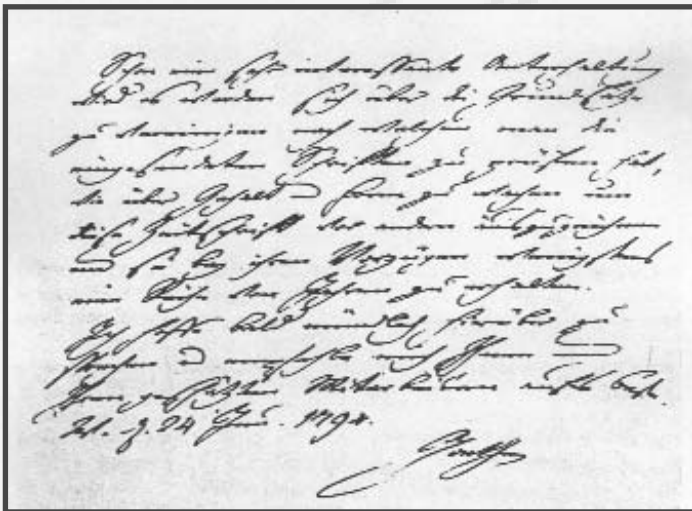 Schon eine sehr interessante Unterhaltung
wird es werden sich über die Grundsätze
zu vereinigen nach welchen man die
eingesendeten Schriften zu prüfen hat,
wie über Gehalt u Form zu wachen um
diese Zeitschrift vor andern auszuzeichnen
und sie bey ihren Vorzügen wenigstens
eine Reihe von Jahren zu erhalten.
Ich hoffe bald mündlich hierüber zu
sprechen u empfehle mich Ihnen und
Ihren geschätzten Mitarbeitern aufs beste.
W. d. 24 Jun. 1794.
Goethe